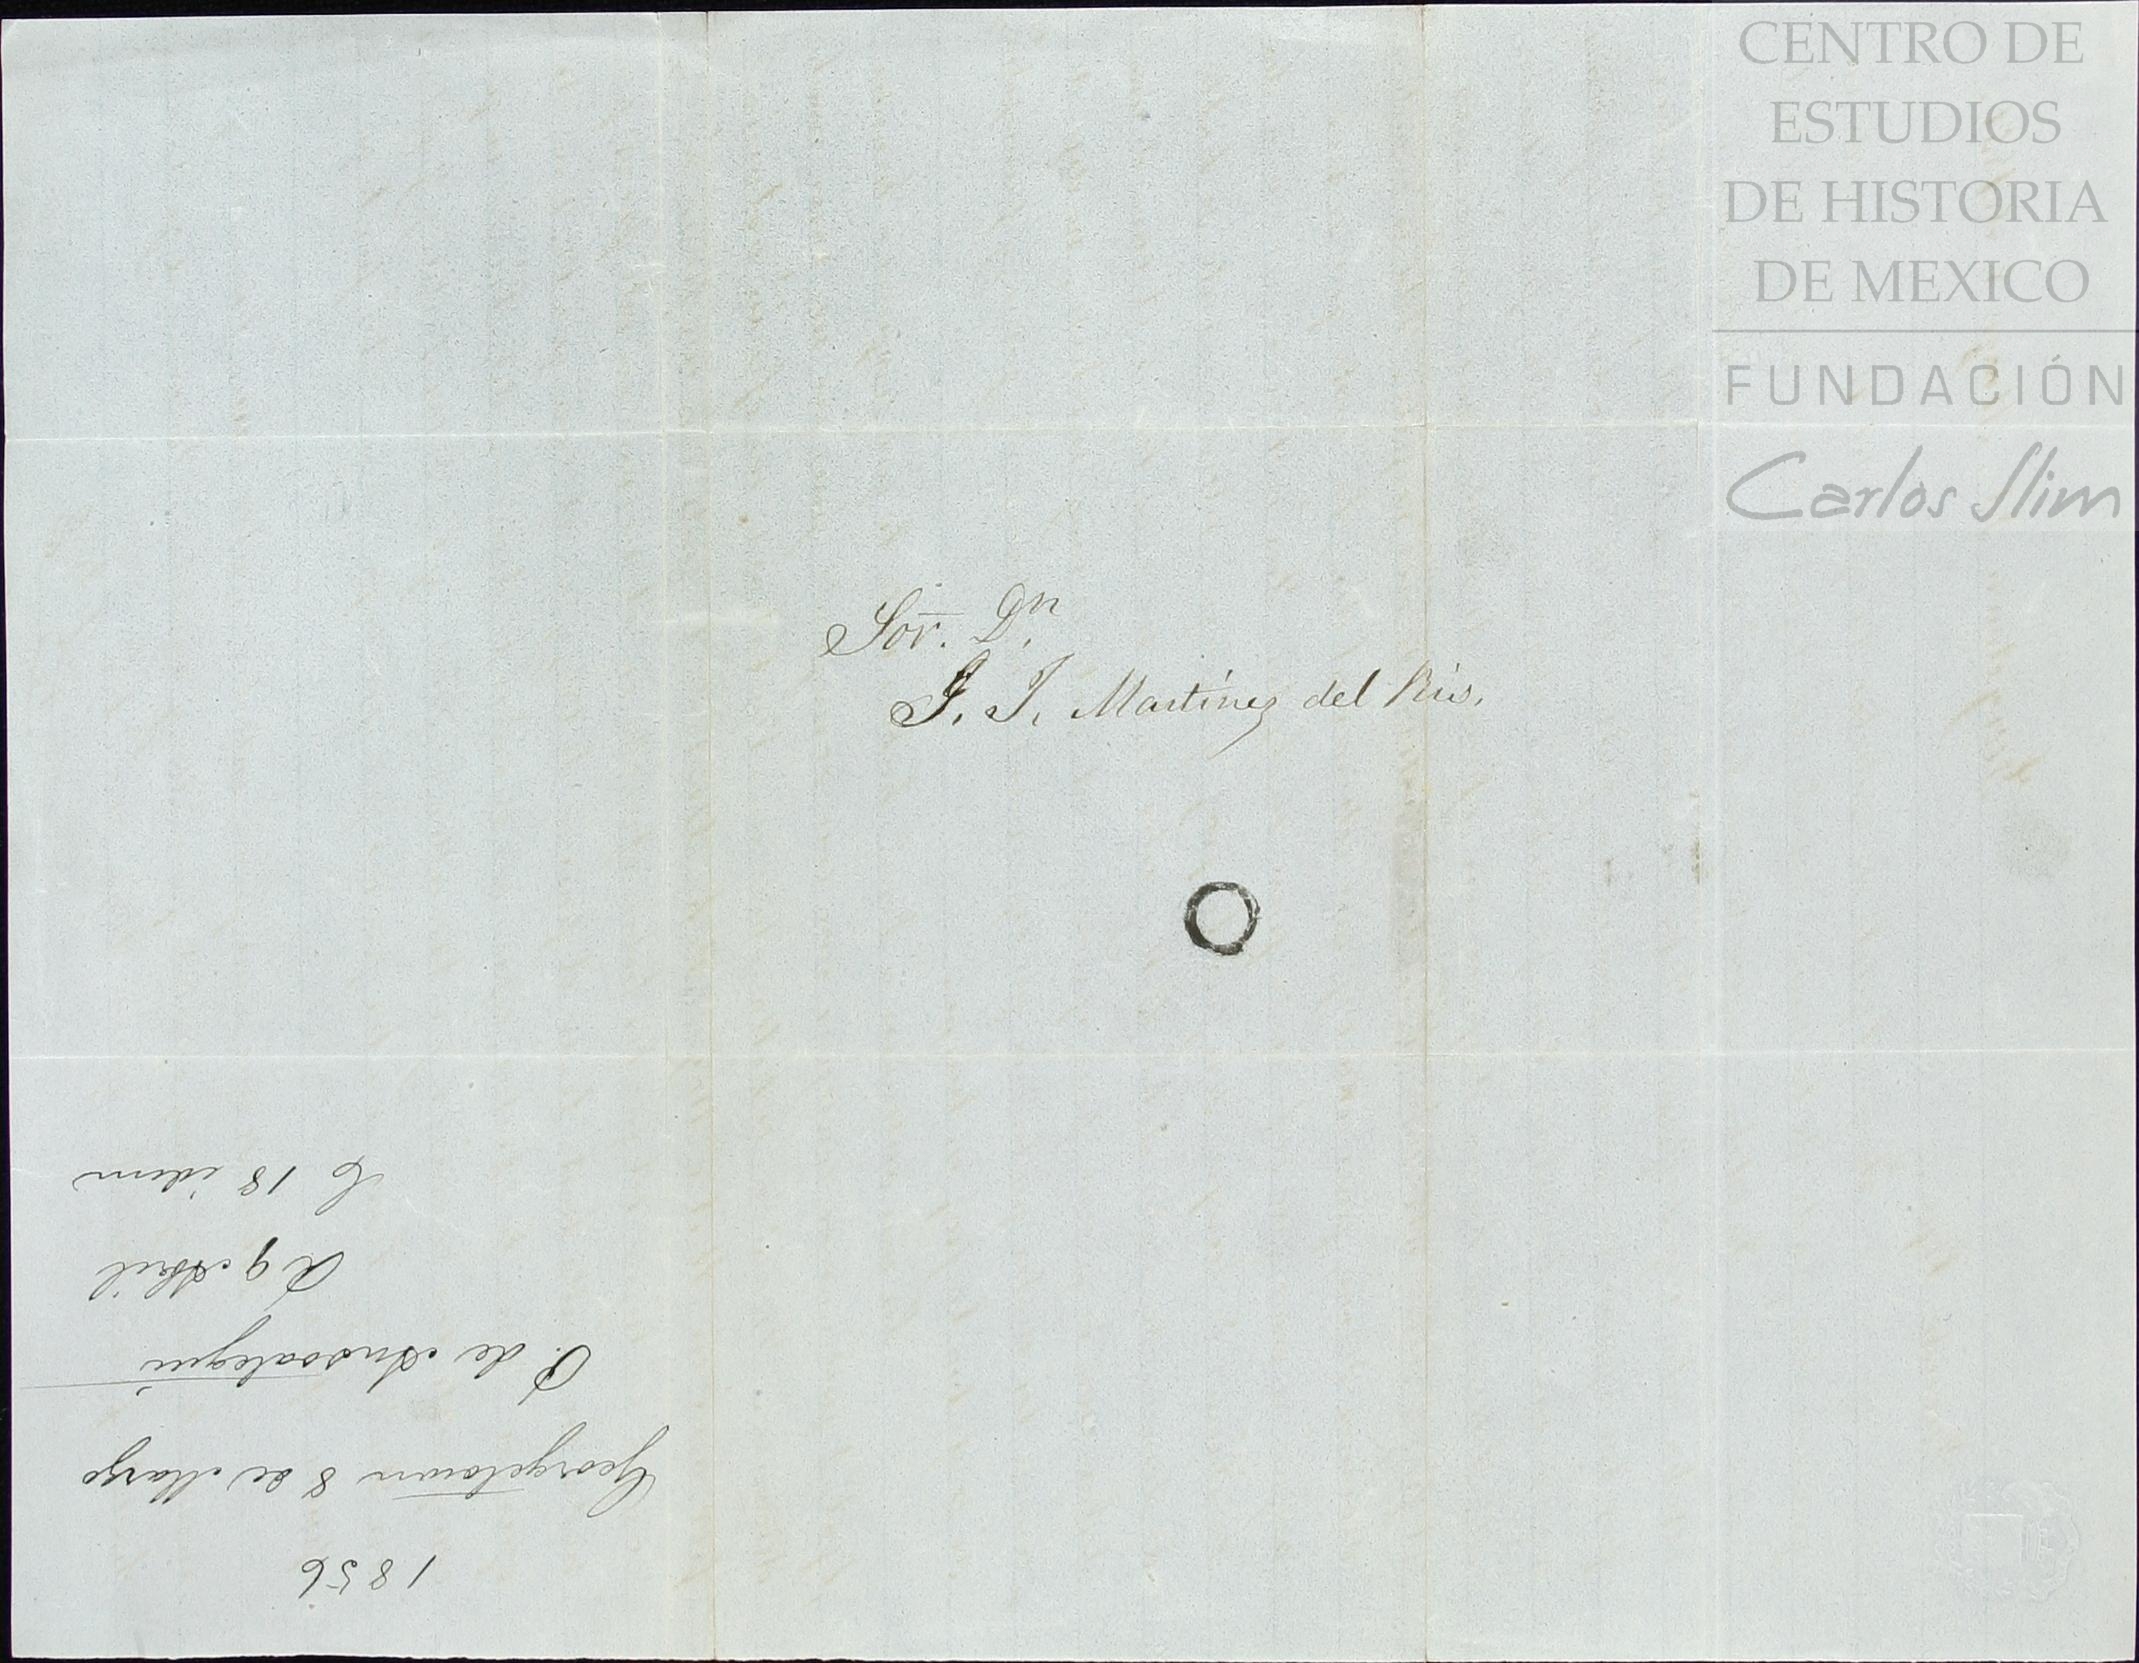 CENTRO DE
ESTUDIOS
DE HISTORIA
DE MEXICO
FUNDACIÓN
Carlos Slim
Sor. Dn.
J. J. Martinez del Rio.
1856
Georgetown 8 de Marzo
P. de Ansoategui
R 9 Abril
C 18 idem